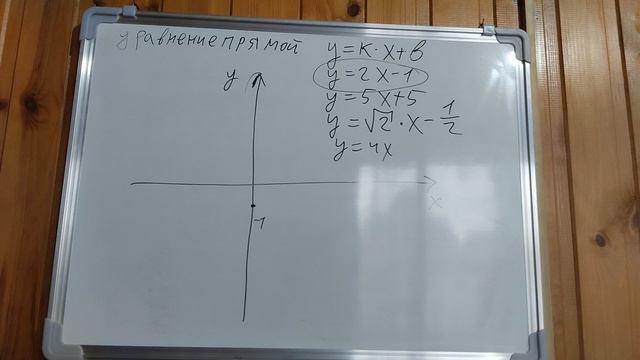 уравнение прямой
y = k · x + b
y = 2x - 1
y = 5x + 5
y = √2 · x - 1/2
y = 4x
y
x
-1